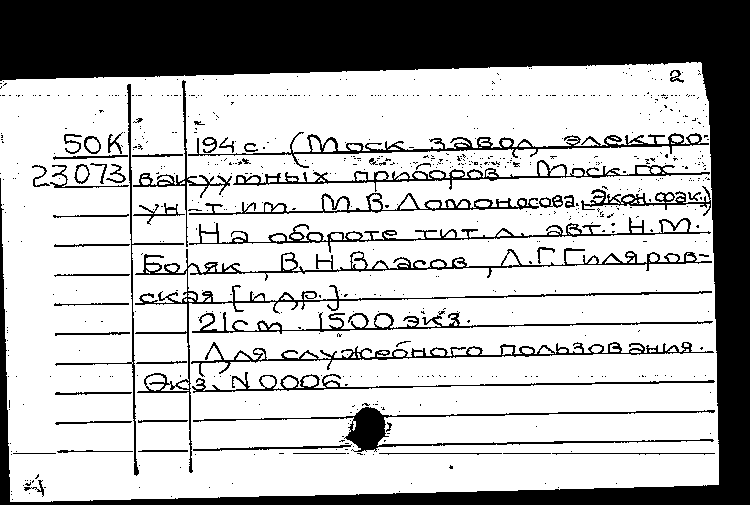 2
50К 194 с. (Моск. завод электро-
23073 вакуумных приборов. Моск. гос.
ун-т им. М.В. Ломоносова, Экон. фак.)
На обороте тит. л. авт.: Н.М.
Боляк, В.Н. Власов, Л.Г. Гиляров-
ская [и др.].
21 см. 1500 экз.
Для служебного пользования.
Экз. N 0006.